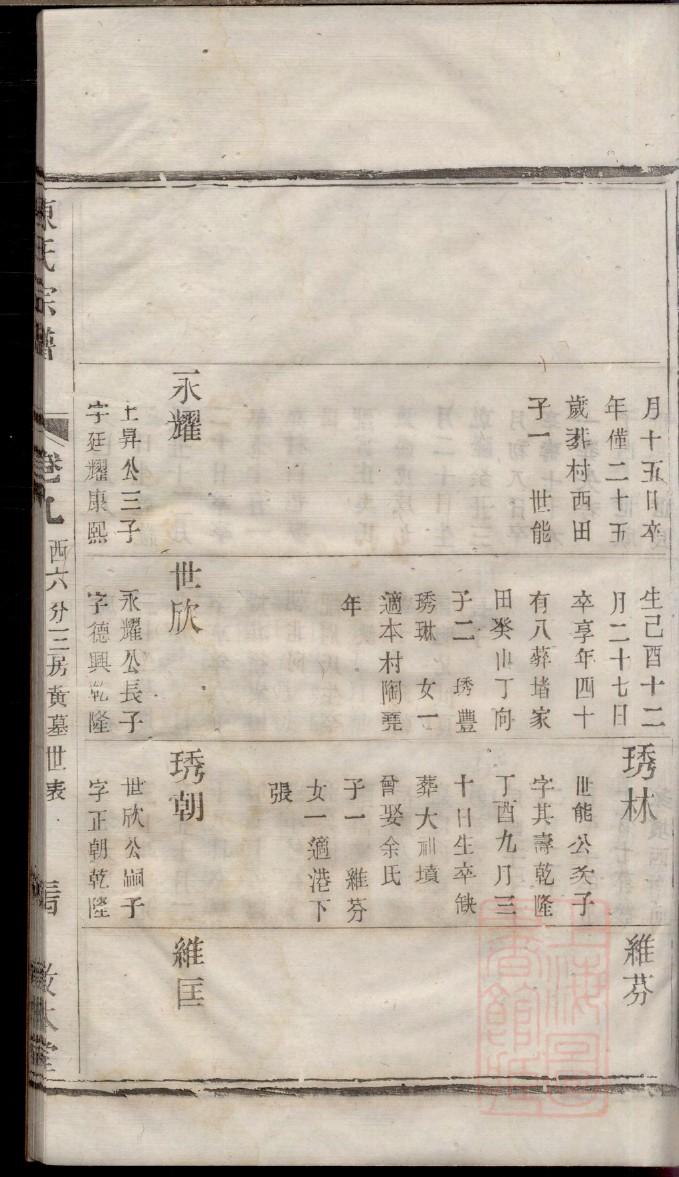 月十五日卒
年僅二十五
歲葬村西田
子一　世能
永耀
士昇公三子
字廷耀康熙
生己酉十二
月二十七日
卒享年四十
有八葬堵家
田癸山丁向
子二　琇豐
琇琳　女一
適本村陶堯
年
世欣
永耀公長子
字德興乾隆
琇林
世能公次子
字其壽乾隆
丁酉九月三
十日生卒缺
葬大圳墳
曾娶余氏
子一　維芬
女一適港下
張
琇朝
世欣公嗣子
字正朝乾隆
維芬
維匡
陳氏宗譜
卷九
西六分三房黃墓世表
敦本堂
上海圖書館藏